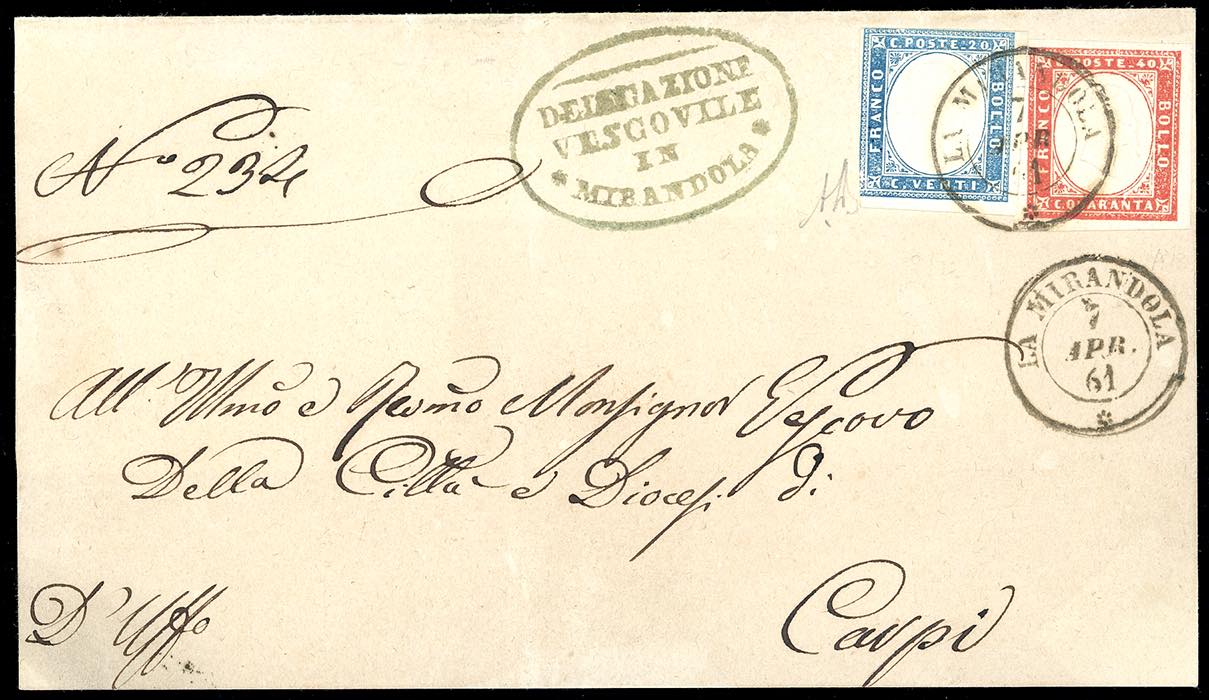 N.º 234
DELEGAZIONE
VESCOVILE
IN
* MIRANDOLA *
C. POSTE. 20.
FRANCO
BOLLO
C. VENTI
C. POSTE. 40.
FRANCO
BOLLO
C. QUARANTA
LA MIRANDOLA
7
APR
61
*
LA MIRANDOLA
7
APR.
61
*
All' Illmõ e Revmõ Monsignor Vescovo
Della Città e Diocesi di
Carpi
D'Uffo